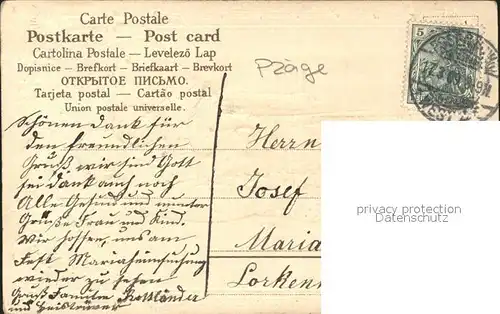 Carte Postale
Postkarte — Post card
Cartolina Postale — Levelező Lap
Dopisnice — Brefkort — Briefkaart — Brevkort
ОТКРЫТОЕ ПИСЬМО.
Tarjeta postal — Cartão postal
Union postale universelle.
Präge
5
Schönen Dank für
den freundlichen
Gruß wir sind Gott
sei dank auch noch
Alle Gesund und munter
Grüße Frau und Kind.
Wir hoffen, uns am
Fest Mariaheimsuchung
wieder zu sehen
Gruß Familie
und
Herrn
Josef
Maria
Lorken
privacy protection
VDPMedien.com